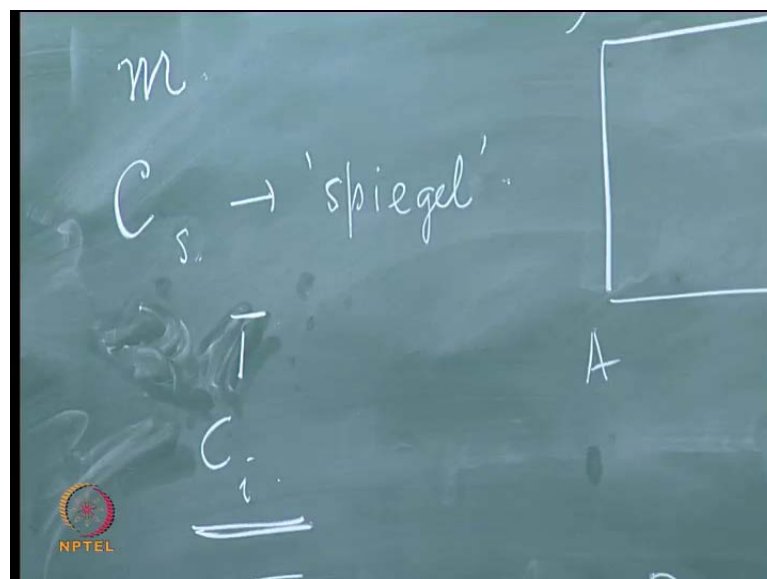 m
C_s → 'spiegel'
1̄
A
C_i
NPTEL